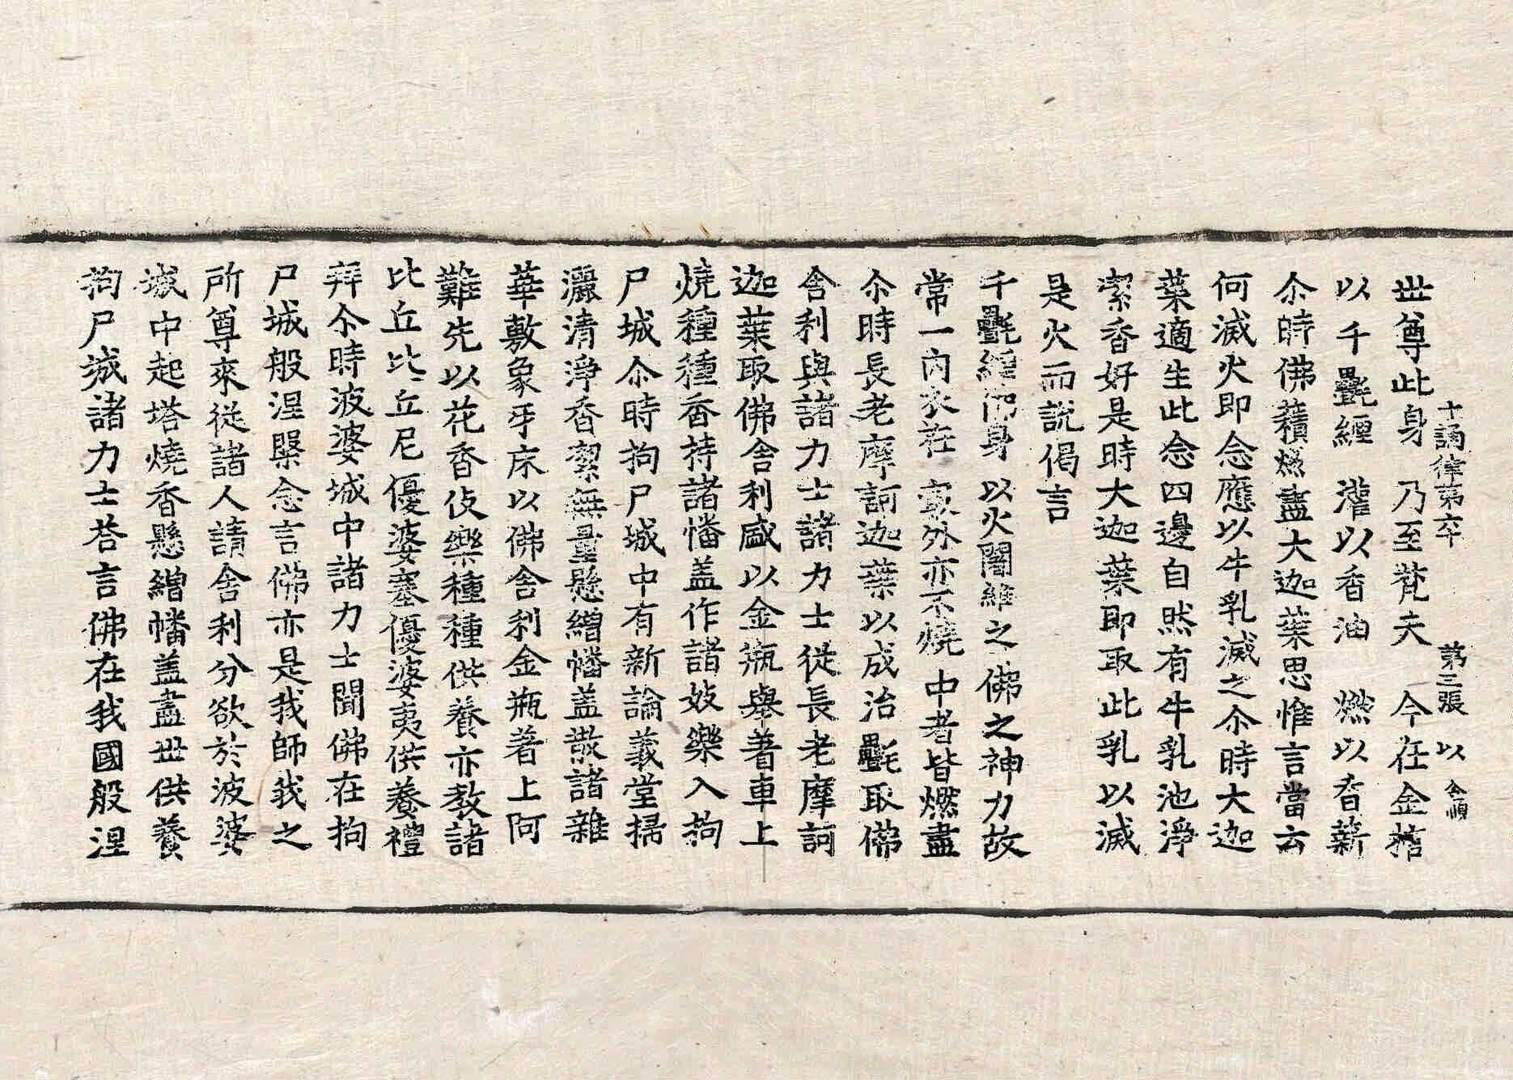 十誦律第六十 第三張 以
世尊此身 乃至梵天 今在金棺
以千㲲纏 灌以香油 燃以香薪
尒時佛𧂐燃盡大迦葉思惟言當云
何滅火即念應以牛乳滅之尒時大迦
葉適生此念四邊自然有牛乳池淨
潔香好是時大迦葉即取此乳以滅
是火而說偈言
千㲲纏佛身 以火闍維之 佛之神力故
常一內衣在 㝡外亦不燒 中者皆燃盡
尒時長老摩訶迦葉以成治㲲取佛
舍利與諸力士諸力士從長老摩訶
迦葉取佛舍利盛以金瓶舉著車上
燒種種香持諸幡盖作諸妓樂入拘
尸城尒時拘尸城中有新論義堂掃
灑清淨香㓗無量懸繒幡盖散諸雜
華敷象牙床以佛舍利金瓶著上阿
難先以花香伎樂種種供養亦教諸
比丘比丘尼優婆塞優婆夷供養禮
拜尒時波婆城中諸力士聞佛在拘
尸城般涅槃念言佛亦是我師我之
所尊來從諸人請舍利分欲於波婆
城中起塔燒香懸繒幡盖盡世供養
拘尸城諸力士荅言佛在我國般涅